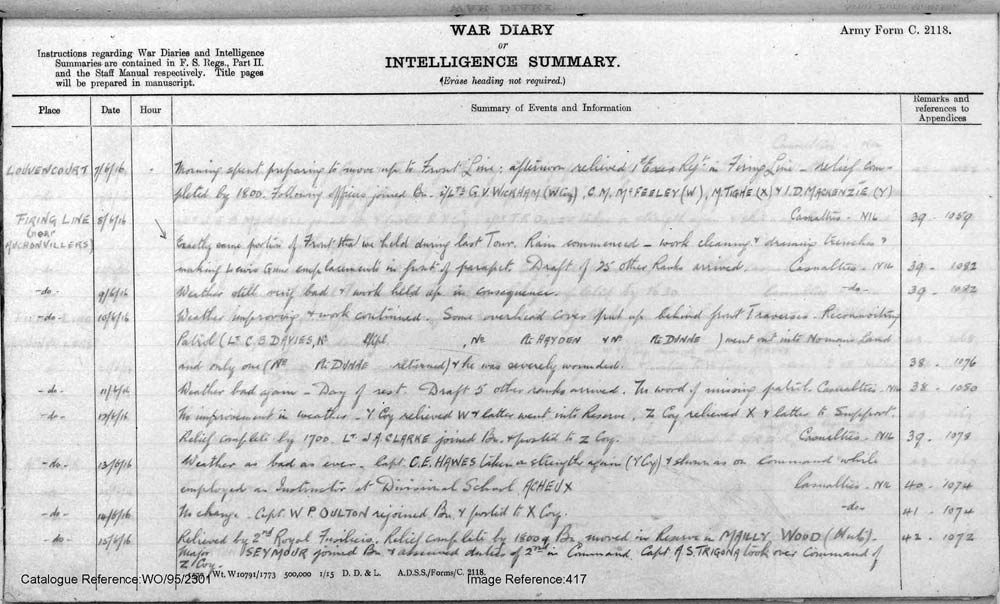 WAR DIARY
or
INTELLIGENCE SUMMARY.
(Erase heading not required.)
Army Form C. 2118.
Instructions regarding War Diaries and Intelligence
Summaries are contained in F. S. Regs., Part II.
and the Staff Manual respectively. Title pages
will be prepared in manuscript.
Place Date Hour Summary of Events and Information Remarks and
references to
Appendices
LOUVENCOURT 7/6/16 Morning spent preparing to move up to Front Line: afternoon relieved 1st Essex Regt in Firing Line - relief com-
pleted by 1800. Following officers joined Bn. 2/Lts G.V. WICKHAM (W Coy), C.M. McFEELEY (W), M. TIGHE (X) & I.D. MACKENZIE (Y)
Casualties - NIL 39 - 1059
FIRING LINE 8/6/16
(near
AUCHONVILLERS)
Exactly same portion of Front that we held during last Tour. Rain commenced - work cleaning & draining trenches &
making Lewis Guns emplacements in front of parapet. Draft of 25 other Ranks arrived. Casualties - NIL 39 - 1082
-do- 9/6/16 Weather still very bad & work held up in consequence. -do- 39 - 1082
-do- 10/6/16 Weather improving & work continued. Some overhead cover put up behind front Traverses. Reconnoitring
Patrol (Lt. C.B. DAVIES, No , No Pt HAYDEN & No Pt DUNNE ) went out into No mans Land
and only one (No Pt DUNNE returned) & he was severely wounded. 38 - 1076
-do- 11/6/16 Weather bad again - Day of rest. Draft 5 other ranks arrived. No word of missing patrol. Casualties - NIL 38 - 1080
-do- 12/6/16 No improvement in weather - Y Coy relieved W & latter went into Reserve, Z Coy relieved X & latter to Support.
Relief complete by 1700. Lt J.A. CLARKE joined Bn. & posted to Z Coy. Casualties - NIL 39 - 1078
-do- 13/6/16 Weather as bad as ever. Capt. C.E. HAWES taken on strength again (Y Coy) & shown as on command while
employed as Instructor at Divisional School, ACHEUX Casualties - NIL 40 - 1074
-do- 14/6/16 No change. Capt. W.P. OULTON rejoined Bn. & posted to X Coy. -do- 41 - 1074
-do- 15/6/16 Relieved by 2nd Royal Fusiliers. Relief complete by 1800 & Bn. moved in Reserve in MAILLY WOOD (Huts). 42 - 1072
Major SEYMOUR joined Bn & assumed duties of 2nd in Command. Capt A.S. TRIGONA took over command of
Z Coy.
Wt. W10791/1773 500,000 1/15 D. D. & L. A.D.S.S./Forms/C. 2118.
Catalogue Reference:WO/95/2301 Image Reference:417